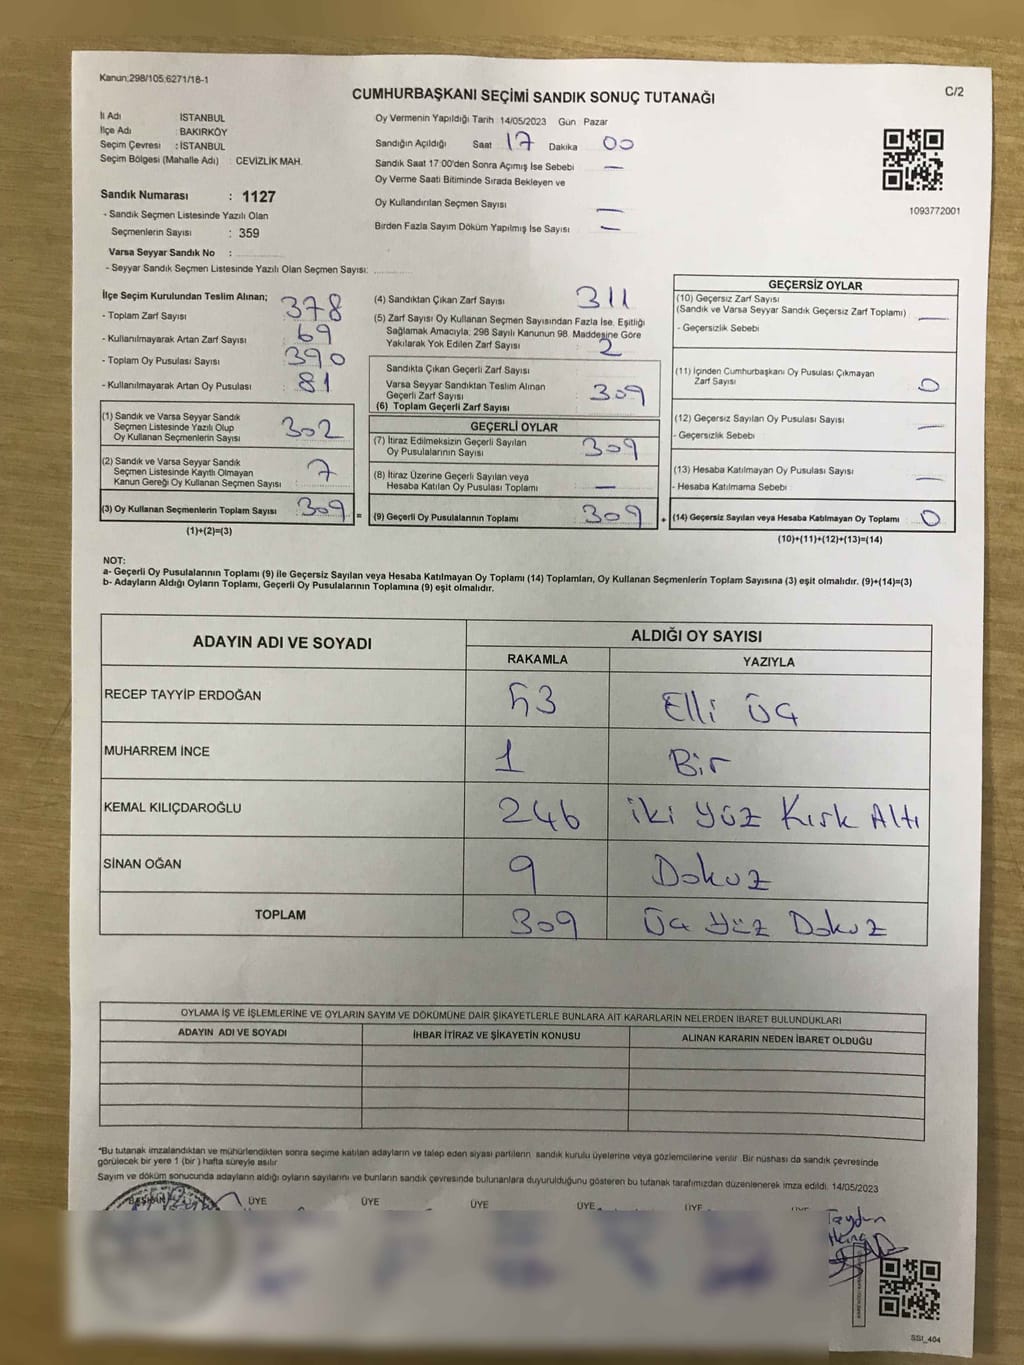 Kanun:298/105;6271/18-1
CUMHURBAŞKANI SEÇİMİ SANDIK SONUÇ TUTANAĞI
C/2
İl Adı İSTANBUL
İlçe Adı : BAKIRKÖY
Seçim Çevresi : İSTANBUL
Seçim Bölgesi (Mahalle Adı) : CEVİZLİK MAH.
Sandık Numarası : 1127
- Sandık Seçmen Listesinde Yazılı Olan
Seçmenlerin Sayısı : 359
Varsa Seyyar Sandık No :
- Seyyar Sandık Seçmen Listesinde Yazılı Olan Seçmen Sayısı:
Oy Vermenin Yapıldığı Tarih 14/05/2023 Gün Pazar
Sandığın Açıldığı Saat 17 Dakika 00
Sandık Saat 17:00'den Sonra Açımış İse Sebebi —
Oy Verme Saati Bitiminde Sırada Bekleyen ve
Oy Kullandırılan Seçmen Sayısı —
Birden Fazla Sayım Döküm Yapılmış İse Sayısı —
1093772001
İlçe Seçim Kurulundan Teslim Alınan;
- Toplam Zarf Sayısı : 378
- Kullanılmayarak Artan Zarf Sayısı : 69
- Toplam Oy Pusulası Sayısı : 390
- Kullanılmayarak Artan Oy Pusulası : 81
(1) Sandık ve Varsa Seyyar Sandık
Seçmen Listesinde Yazılı Olup
Oy Kullanan Seçmenlerin Sayısı : 302
(2) Sandık ve Varsa Seyyar Sandık
Seçmen Listesinde Kayıtlı Olmayan
Kanun Gereği Oy Kullanan Seçmen Sayısı : 7
(3) Oy Kullanan Seçmenlerin Toplam Sayısı : 309
(1)+(2)=(3)
=
(4) Sandıktan Çıkan Zarf Sayısı 311
(5) Zarf Sayısı Oy Kullanan Seçmen Sayısından Fazla İse, Eşitliği
Sağlamak Amacıyla; 298 Sayılı Kanunun 98. Maddesine Göre
Yakılarak Yok Edilen Zarf Sayısı : 2
Sandıkta Çıkan Geçerli Zarf Sayısı
Varsa Seyyar Sandıktan Teslim Alınan
Geçerli Zarf Sayısı : 309
(6) Toplam Geçerli Zarf Sayısı
GEÇERLİ OYLAR
(7) İtiraz Edilmeksizin Geçerli Sayılan
Oy Pusulalarının Sayısı : 309
(8) İtiraz Üzerine Geçerli Sayılan veya
Hesaba Katılan Oy Pusulası Toplamı : —
(9) Geçerli Oy Pusulalarının Toplamı : 309
+
GEÇERSİZ OYLAR
(10) Geçersiz Zarf Sayısı
(Sandık ve Varsa Seyyar Sandık Geçersiz Zarf Toplamı) —
- Geçersizlik Sebebi
(11) İçinden Cumhurbaşkanı Oy Pusulası Çıkmayan
Zarf Sayısı 0
(12) Geçersiz Sayılan Oy Pusulası Sayısı —
- Geçersizlik Sebebi
(13) Hesaba Katılmayan Oy Pusulası Sayısı —
- Hesaba Katılmama Sebebi
(14) Geçersiz Sayılan veya Hesaba Katılmayan Oy Toplamı 0
(10)+(11)+(12)+(13)=(14)
NOT:
a- Geçerli Oy Pusulalarının Toplamı (9) ile Geçersiz Sayılan veya Hesaba Katılmayan Oy Toplamı (14) Toplamları, Oy Kullanan Seçmenlerin Toplam Sayısına (3) eşit olmalıdır. (9)+(14)=(3)
b- Adayların Aldığı Oyların Toplamı, Geçerli Oy Pusulalarının Toplamına (9) eşit olmalıdır.
ADAYIN ADI VE SOYADI ALDIĞI OY SAYISI
RAKAMLA YAZIYLA
RECEP TAYYİP ERDOĞAN 53 Elli Üç
MUHARREM İNCE 1 Bir
KEMAL KILIÇDAROĞLU 246 iki yüz Kırk Altı
SİNAN OĞAN 9 Dokuz
TOPLAM 309 Üç Yüz Dokuz
OYLAMA İŞ VE İŞLEMLERİNE VE OYLARIN SAYIM VE DÖKÜMÜNE DAİR ŞİKAYETLERLE BUNLARA AİT KARARLARIN NELERDEN İBARET BULUNDUKLARI
ADAYIN ADI VE SOYADI İHBAR İTİRAZ VE ŞİKAYETİN KONUSU ALINAN KARARIN NEDEN İBARET OLDUĞU
*Bu tutanak imzalandıktan ve mühürlendikten sonra seçime katılan adayların ve talep eden siyasi partilerin sandık kurulu üyelerine veya gözlemcilerine verilir. Bir nüshası da sandık çevresinde
görülecek bir yere 1 (bir) hafta süreyle asılır
Sayım ve döküm sonucunda adayların aldığı oyların sayılarını ve bunların sandık çevresinde bulunanlara duyurulduğunu gösteren bu tutanak tarafımızdan düzenlenerek imza edildi. 14/05/2023
BAŞKAN ÜYE ÜYE ÜYE ÜYE ÜYE
SSI_404